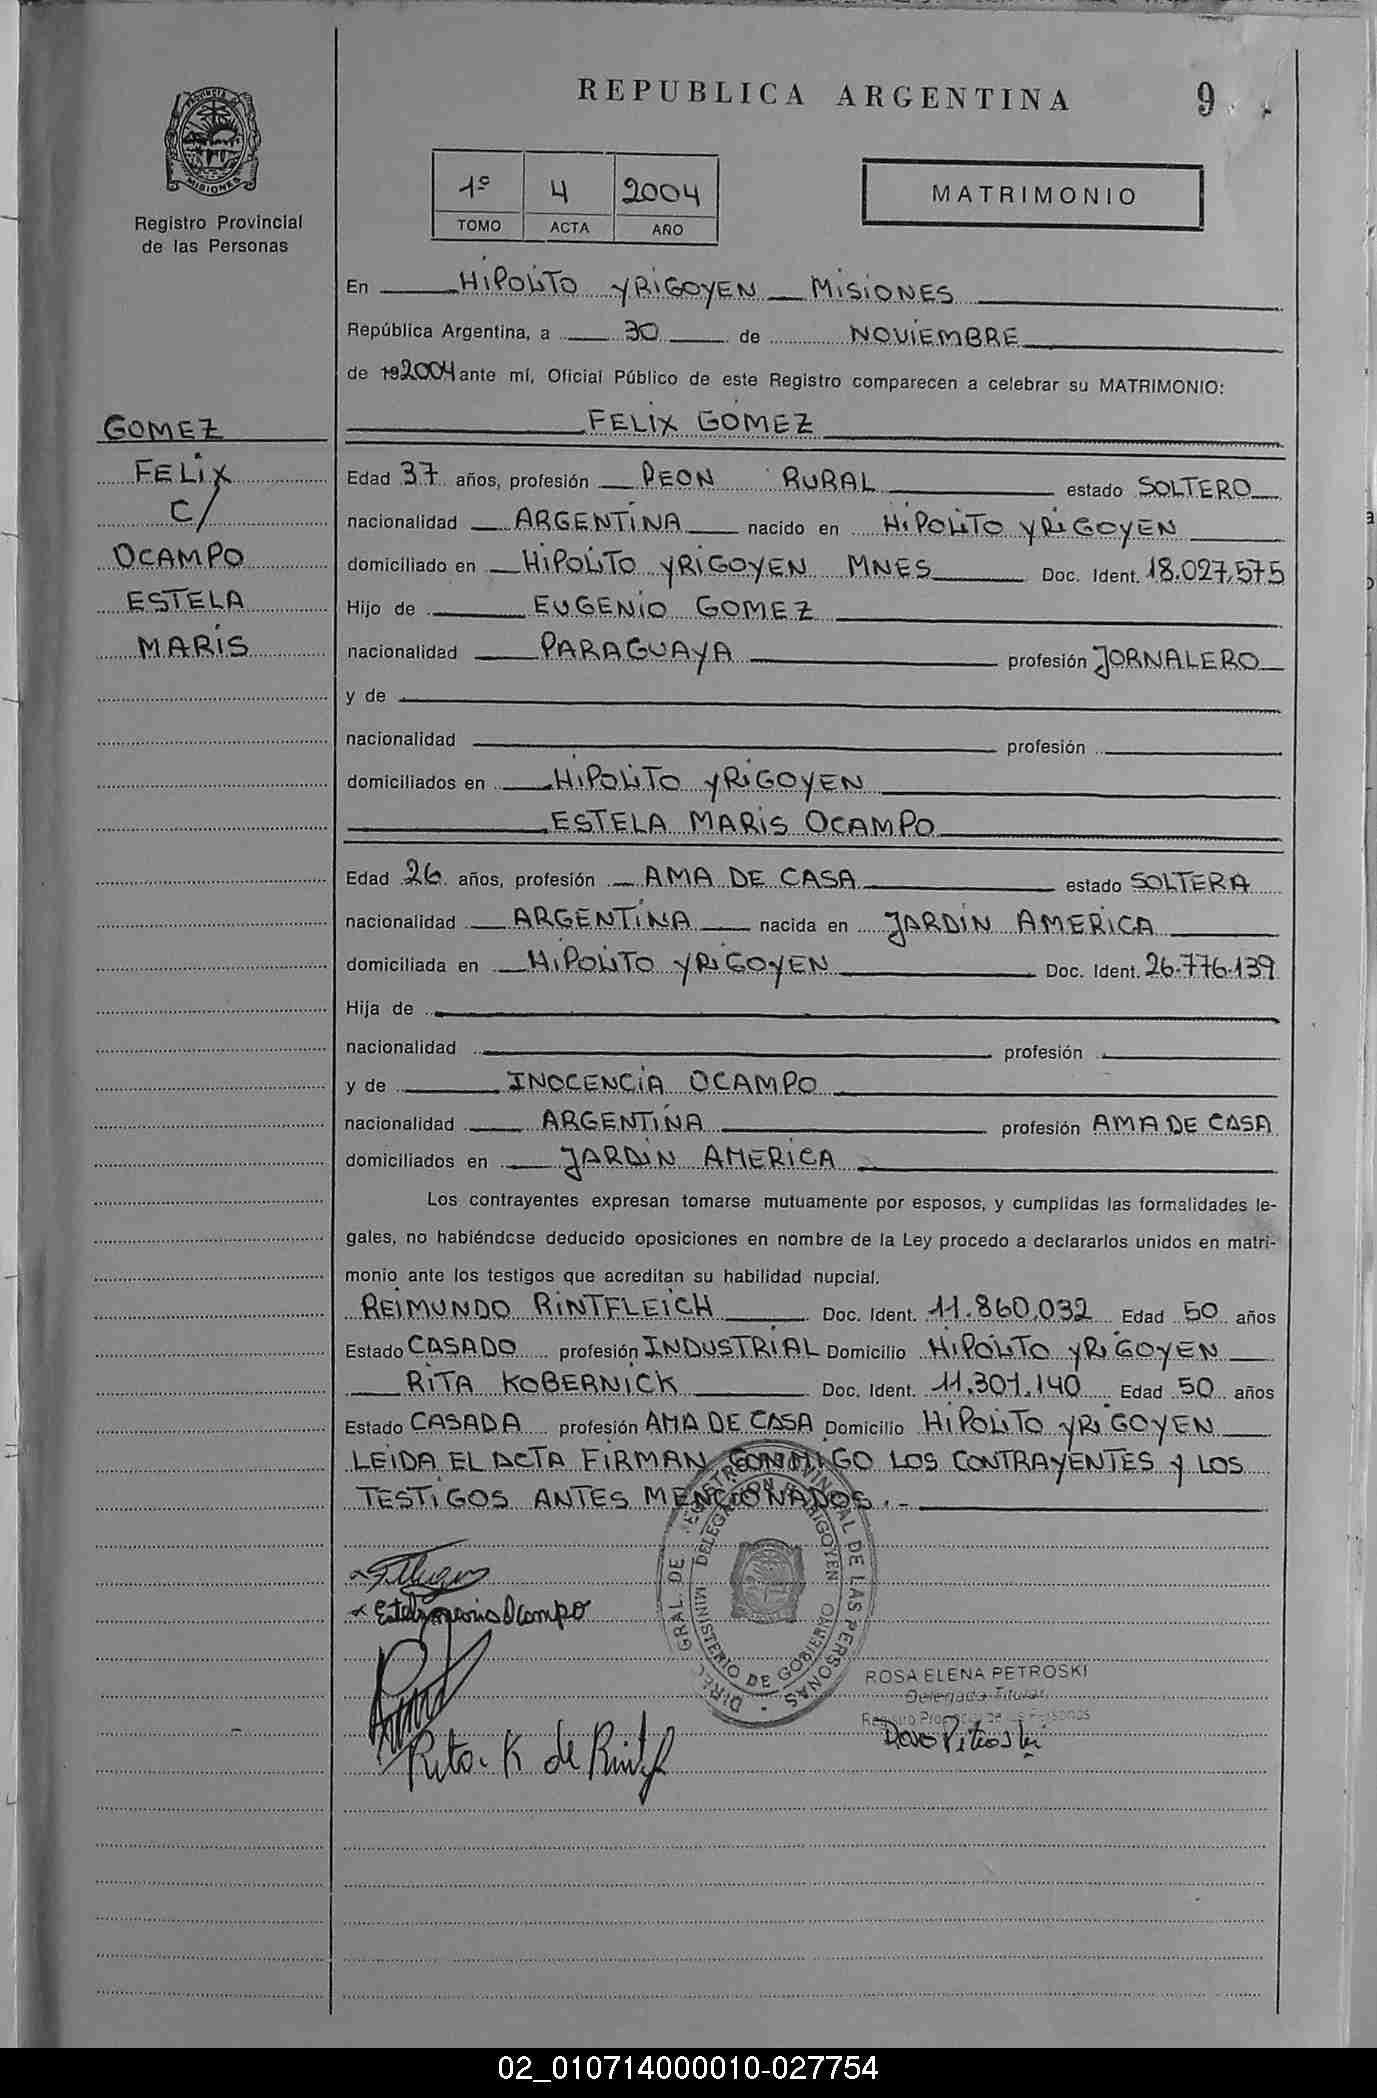 REPUBLICA ARGENTINA
9
PROVINCIA DE MISIONES
Registro Provincial
de las Personas
1º 4 2004
TOMO ACTA AÑO
MATRIMONIO
En HIPOLITO YRIGOYEN MISIONES
República Argentina, a 30 de NOVIEMBRE
de 192004 ante mí, Oficial Público de este Registro comparecen a celebrar su MATRIMONIO:
GOMEZ
FELIX
C/
OCAMPO
ESTELA
MARIS
FELIX GOMEZ
Edad 37 años, profesión PEON RURAL estado SOLTERO
nacionalidad ARGENTINA nacido en HIPOLITO YRIGOYEN
domiciliado en HIPOLITO YRIGOYEN MNES Doc. Ident. 18.027.575
Hijo de EUGENIO GOMEZ
nacionalidad PARAGUAYA profesión JORNALERO
y de
nacionalidad profesión
domiciliados en HIPOLITO YRIGOYEN
ESTELA MARIS OCAMPO
Edad 26 años, profesión AMA DE CASA estado SOLTERA
nacionalidad ARGENTINA nacida en JARDIN AMERICA
domiciliada en HIPOLITO YRIGOYEN Doc. Ident. 26.776.139
Hija de
nacionalidad profesión
y de INOCENCIA OCAMPO
nacionalidad ARGENTINA profesión AMA DE CASA
domiciliados en JARDIN AMERICA
Los contrayentes expresan tomarse mutuamente por esposos, y cumplidas las formalidades le-
gales, no habiéndcse deducido oposiciones en nombre de la Ley procedo a declararlos unidos en matri-
monio ante los testigos que acreditan su habilidad nupcial.
REIMUNDO RINTFLEICH Doc. Ident. 11.860.032 Edad 50 años
Estado CASADO profesión INDUSTRIAL Domicilio HIPOLITO YRIGOYEN
RITA KOBERNICK Doc. Ident. 11.301.140 Edad 50 años
Estado CASADA profesión AMA DE CASA Domicilio HIPOLITO YRIGOYEN
LEIDA EL ACTA FIRMAN CONMIGO LOS CONTRAYENTES Y LOS
TESTIGOS ANTES MENCIONADOS.-
Estela maris Ocampo
Rita K de Rintf
DIREC. GRAL. DE REGISTRO PROVINCIAL DE LAS PERSONAS
MINISTERIO DE GOBIERNO
ROSA ELENA PETROSKI
Delegada Titular
Registro Provincial de las Personas
02_010714000010-027754